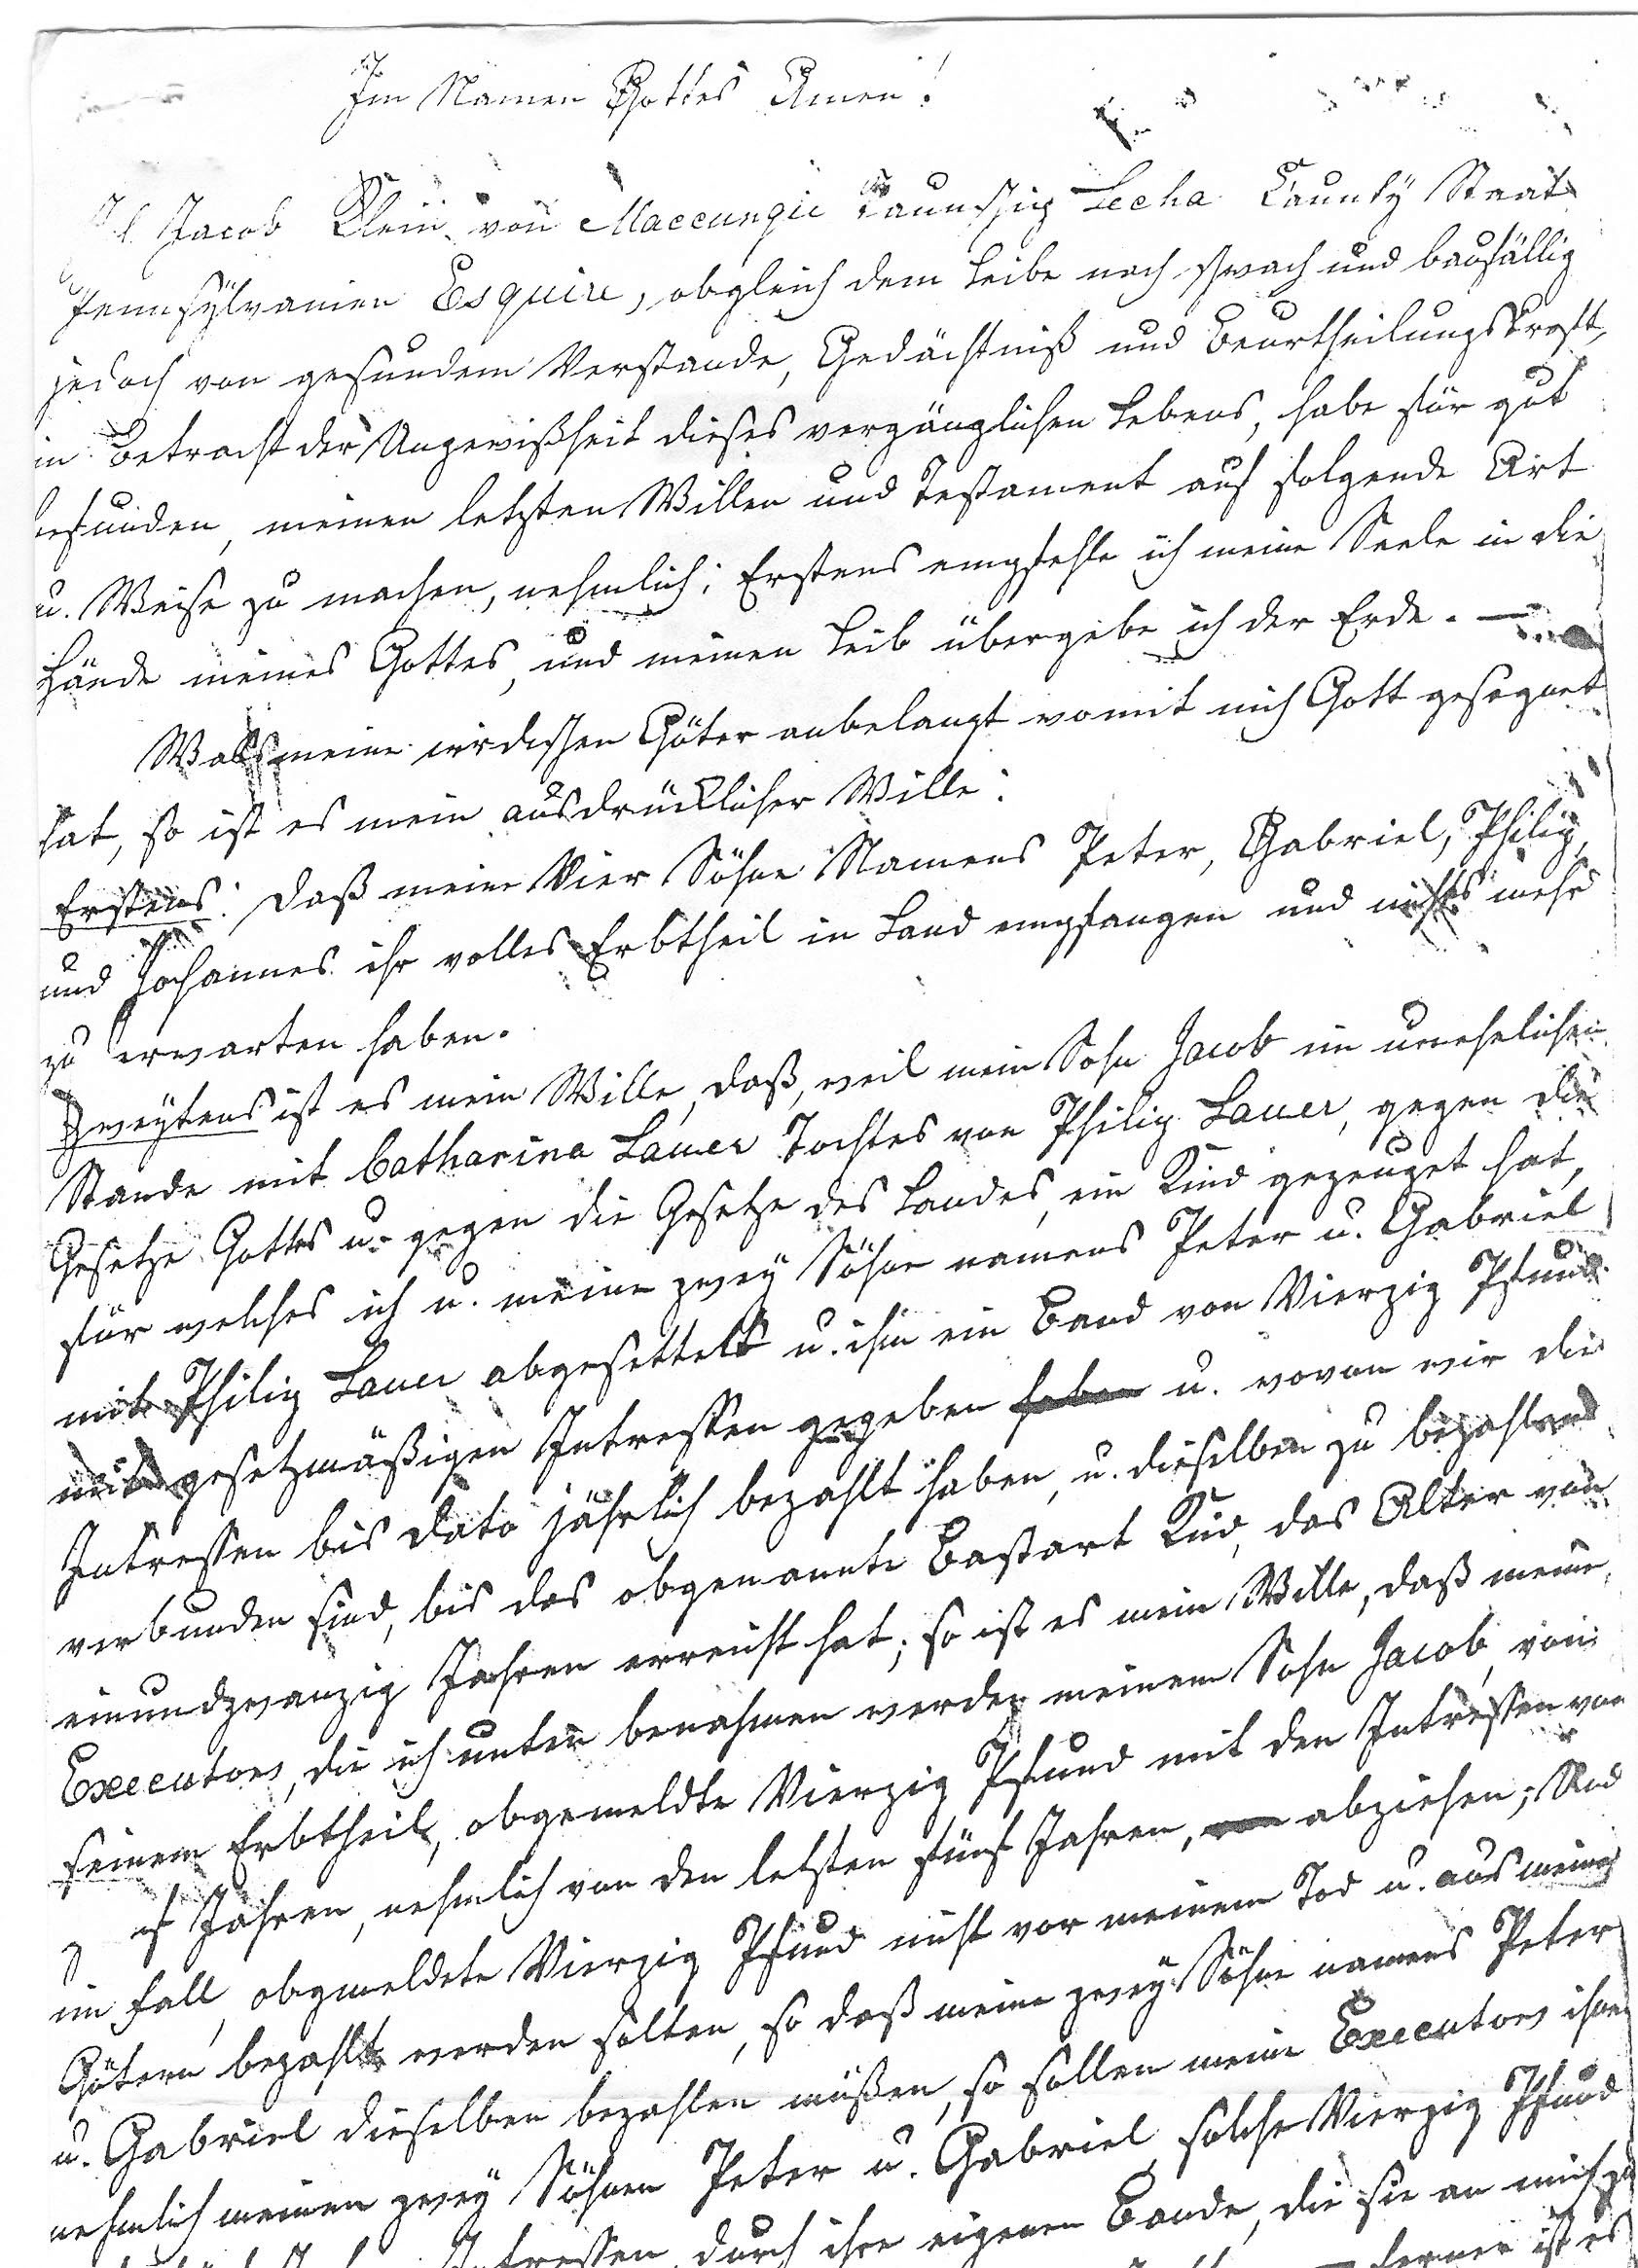 Im Namen Gottes Amen!
Ich Jacob Klein von Maccungie Taunschip Lecha Caunty Staat
Pennsÿlvanien Esquire, obgleich dem Leibe nach schwach und baufällig
jedoch von gesundem Verstande, Gedächtniß und Beurtheilungskraft,
in Betracht der Ungewißheit dieses vergänglichen Lebens, habe für gut
befunden, meinen letzten Willen und Testament auf folgende Art
u. Weise zu machen, nehmlich: Erstens empfehle ich meine Seele in die
Hände meines Gottes, und meinen Leib übergebe ich der Erde. —
Was meine irdischen Güter anbelangt womit mich Gott gesegnet
hat, so ist es mein ausdrücklicher Wille:
Erstens: Daß meine Vier Söhne Namens Peter, Gabriel, Philip,
und Johannes ihr volles Erbtheil in Land empfangen und nichts mehr
zu erwarten haben.
Zweÿtens ist es mein Wille, daß, weil mein Sohn Jacob im unehelichen
Stande mit Catharina Lauer Tochter von Philip Lauer, gegen die
Gesetze Gottes u. gegen die Gesetze des Landes, ein Kind gezeuget hat,
für welches ich u. meine zweÿ Söhne namens Peter u. Gabriel
mit Philip Lauer abgesettelt u. ihm ein Band von Vierzig Pfund
mit gesetzmäßigen Intressen gegeben haben u. wovon wir die
Intressen bis dato jährlich bezahlt haben, u. dieselben zu bezahlen
verbunden sind, bis das obgenannte Bastart Kind, das Alter von
einundzwanzig Jahren erreicht hat; so ist es mein Wille, daß meine
Executors, die ich unten benahmen werde, meinem Sohn Jacob, von
seinem Erbtheil, obgemeldte Vierzig Pfund mit den Intressen von
Jahren, nehmlich von den letzten fünf Jahren, abziehen; Und
im Fall, obgmeldete Vierzig Pfund nicht vor meinem Tod u. aus meinen
Gütern bezahlt werden solten, so daß meine zweÿ Söhne namens Peter
u. Gabriel dieselben bezahlen müßen, so sollen meine Executors ihnen
nehmlich meinen zweÿ Söhnen Peter u. Gabriel, solche Vierzig Pfund
Intressen, durch ihre eigenen Bande, die sie an mich zu
ferner ist es